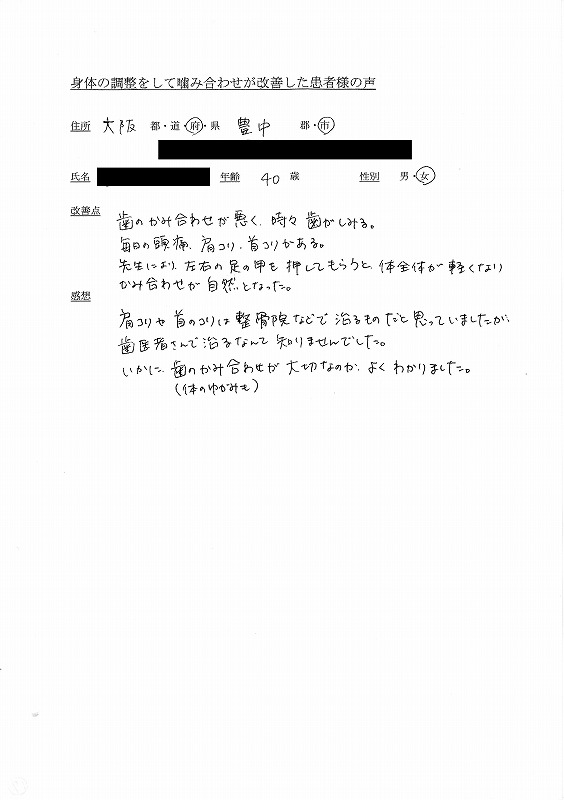 身体の調整をして噛み合わせが改善した患者様の声
住所 大阪 都・道・府・県 豊中 郡・市
氏名 年齢 40 歳 性別 男・女
改善点
歯のかみ合わせが悪く、時々歯がしみる。
毎日の頭痛、肩コリ、首コリがある。
先生により、左右の足の甲を押してもらうと、体全体が軽くなり
かみ合わせが自然となった。
感想
肩コリや首のコリは整骨院などで治るものだと思っていましたが、
歯医者さんで治るなんて知りませんでした。
いかに、歯のかみ合わせが大切なのか、よくわかりました。
(体のゆがみも)